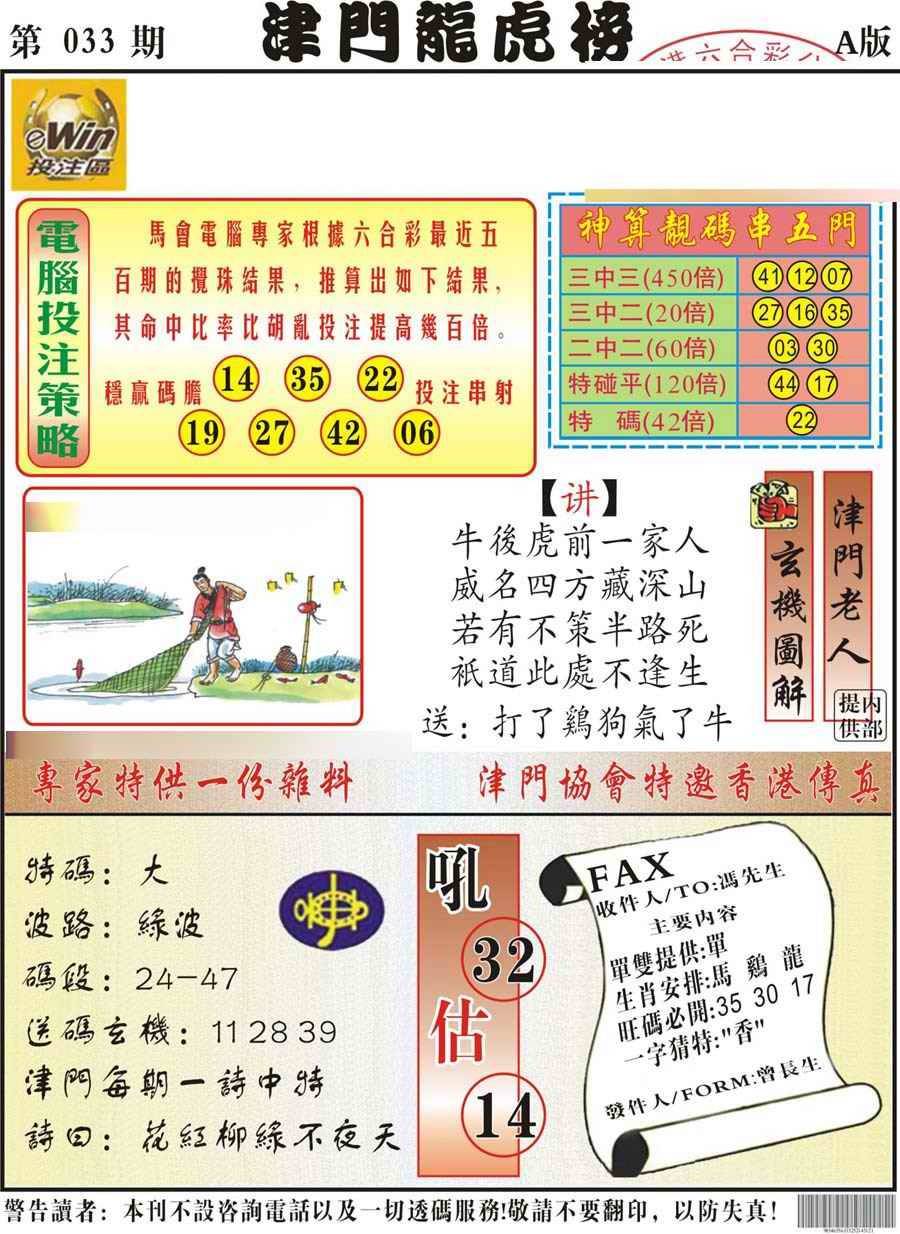 第 033 期
津門龍虎榜
港六合彩公
A版
eWin
投注區
電腦投注策略
馬會電腦專家根據六合彩最近五
百期的攪珠結果，推算出如下結果，
其命中比率比胡亂投注提高幾百倍。
穩贏碼膽 14 35 22 投注串射
19 27 42 06
神算靚碼串五門
三中三(450倍) 41 12 07
三中二(20倍) 27 16 35
二中二(60倍) 03 30
特碰平(120倍) 44 17
特 碼(42倍) 22
【讲】
牛後虎前一家人
威名四方藏深山
若有不策半路死
祇道此處不逢生
送：打了鷄狗氣了牛
玄機圖解
津門老人
内部提供
專家特供一份雜料
津門協會特邀香港傳真
特碼：大
波路：綠波
碼段：24－47
送碼玄機：11 28 39
津門每期一詩中特
詩曰：花紅柳綠不夜天
吼
32
估
14
FAX
收件人/TO:馮先生
主要内容
單雙提供:單
生肖安排:馬 鷄 龍
旺碼必開:35 30 17
一字猜特:"香"
發件人/FORM:曾長生
警告讀者：本刊不設咨詢電話以及一切透碼服務!敬請不要翻印，以防失真！